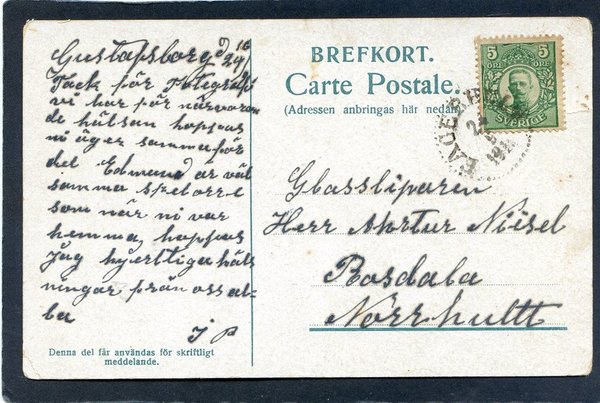 Gustafsborg d 24/
Tack för fotografi
vi har för närvaran
de hälsan hoppas
ni äger samma för
del Edmund är väl
samma
som när ni var
hemma, hoppas
Jag hjertliga häls
ningar från oss al-
la
J P
Denna del får användas för skriftligt
meddelande.
BREFKORT.
Carte Postale.
(Adressen anbringas här nedan)
5 5
ÖRE ÖRE
SVERIGE
Glassliparen
Herr Artur Nilsel
Rosdala
Norrhultt